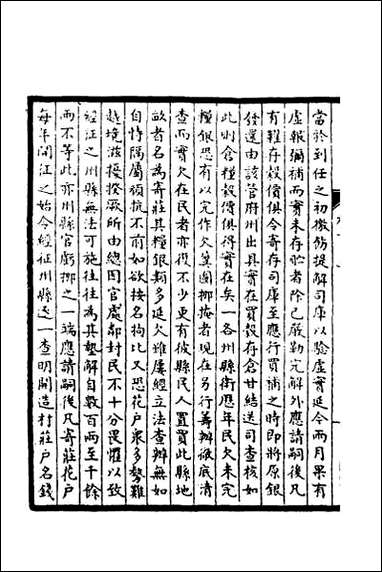 當於到任之初檄飭提解司庫以驗虛實延今兩月果有
虛報彌補而實未存貯者除已嚴勒完解外應請嗣後凡
有糶存穀價俱令寄存司庫至應行買補之時即將原銀
發還由該管府州出具實在買穀存倉甘結送司查核如
此則倉糧穀價俱得實在矣一各州縣衛歷年民欠未完
糧銀恐有以完作欠冀圖挪掩者現在另行籌辦徹底清
查而實欠在民者亦復不少更有彼縣民人置買此縣地
畝者名為寄莊其糧銀類多延欠雖屢經立法查辦無如
自恃隔屬頑抗不前如欲按名拘比又恐花戶衆多勢難
越境滋擾揆厥所由總因官處鄰封民不十分畏懼以致
經征之州縣無法可施往往為其墊解自數百兩至千餘
而不等此亦州縣官虧挪之一端應請嗣後凡寄莊花戶
每年開征之始令經征州縣逐一查明開造村莊戶名錢